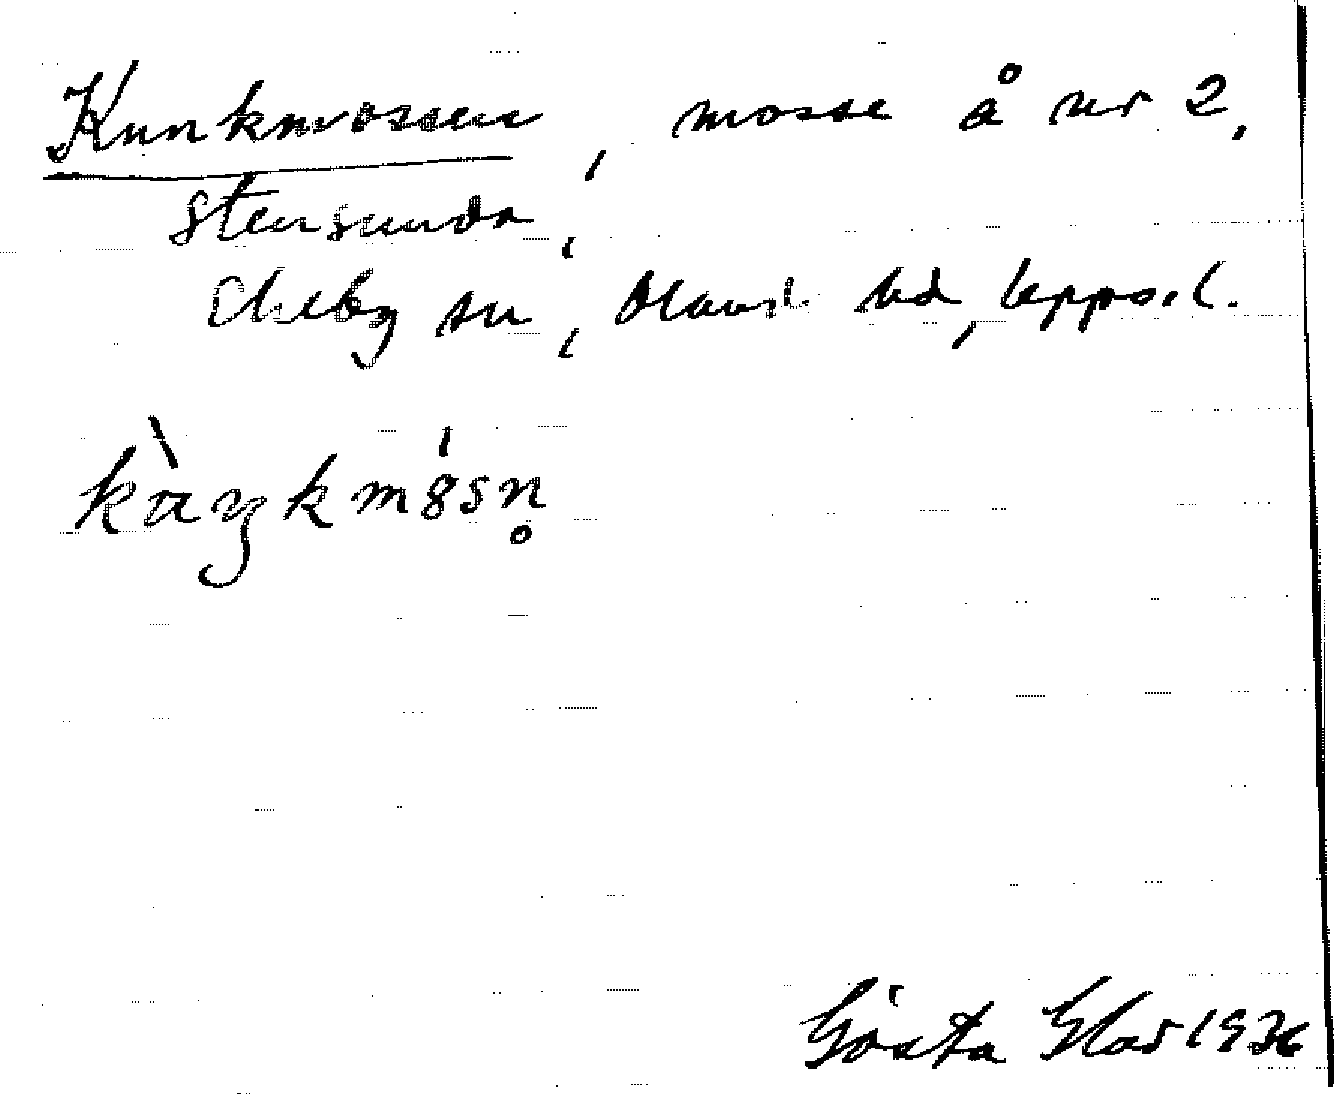 Kunkmossen, mosse å nr 2,
Stensunda,
Ekeby sn, Oland hd, Upps. l.
kàŋkm8́sn̥
Gösta Glad 1936